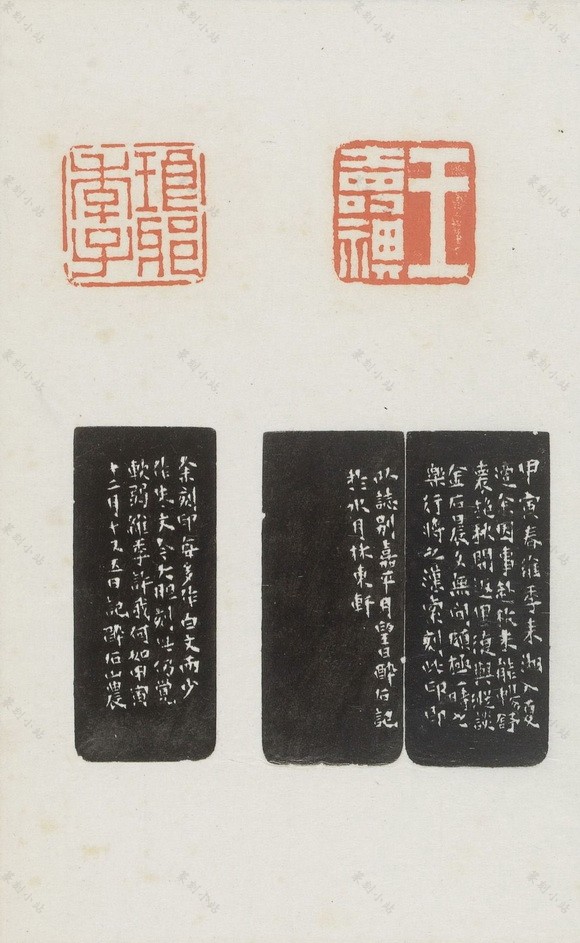 王
壽祺
琅邪
季子
甲寅春維季来湘入夏
余因事赴 未能暢舒
衷 秋間返里復與縱談
金石晨夕無間頗極一時之
樂行將之漢索刻此印即
以誌別嘉平月望日醉石記
於水月林東軒
余刻印每多作白文而少
作朱文今大胆刻此仍覺
軟弱維季許我何如甲寅
十二月十又五日記醉石山農
篆刻小站